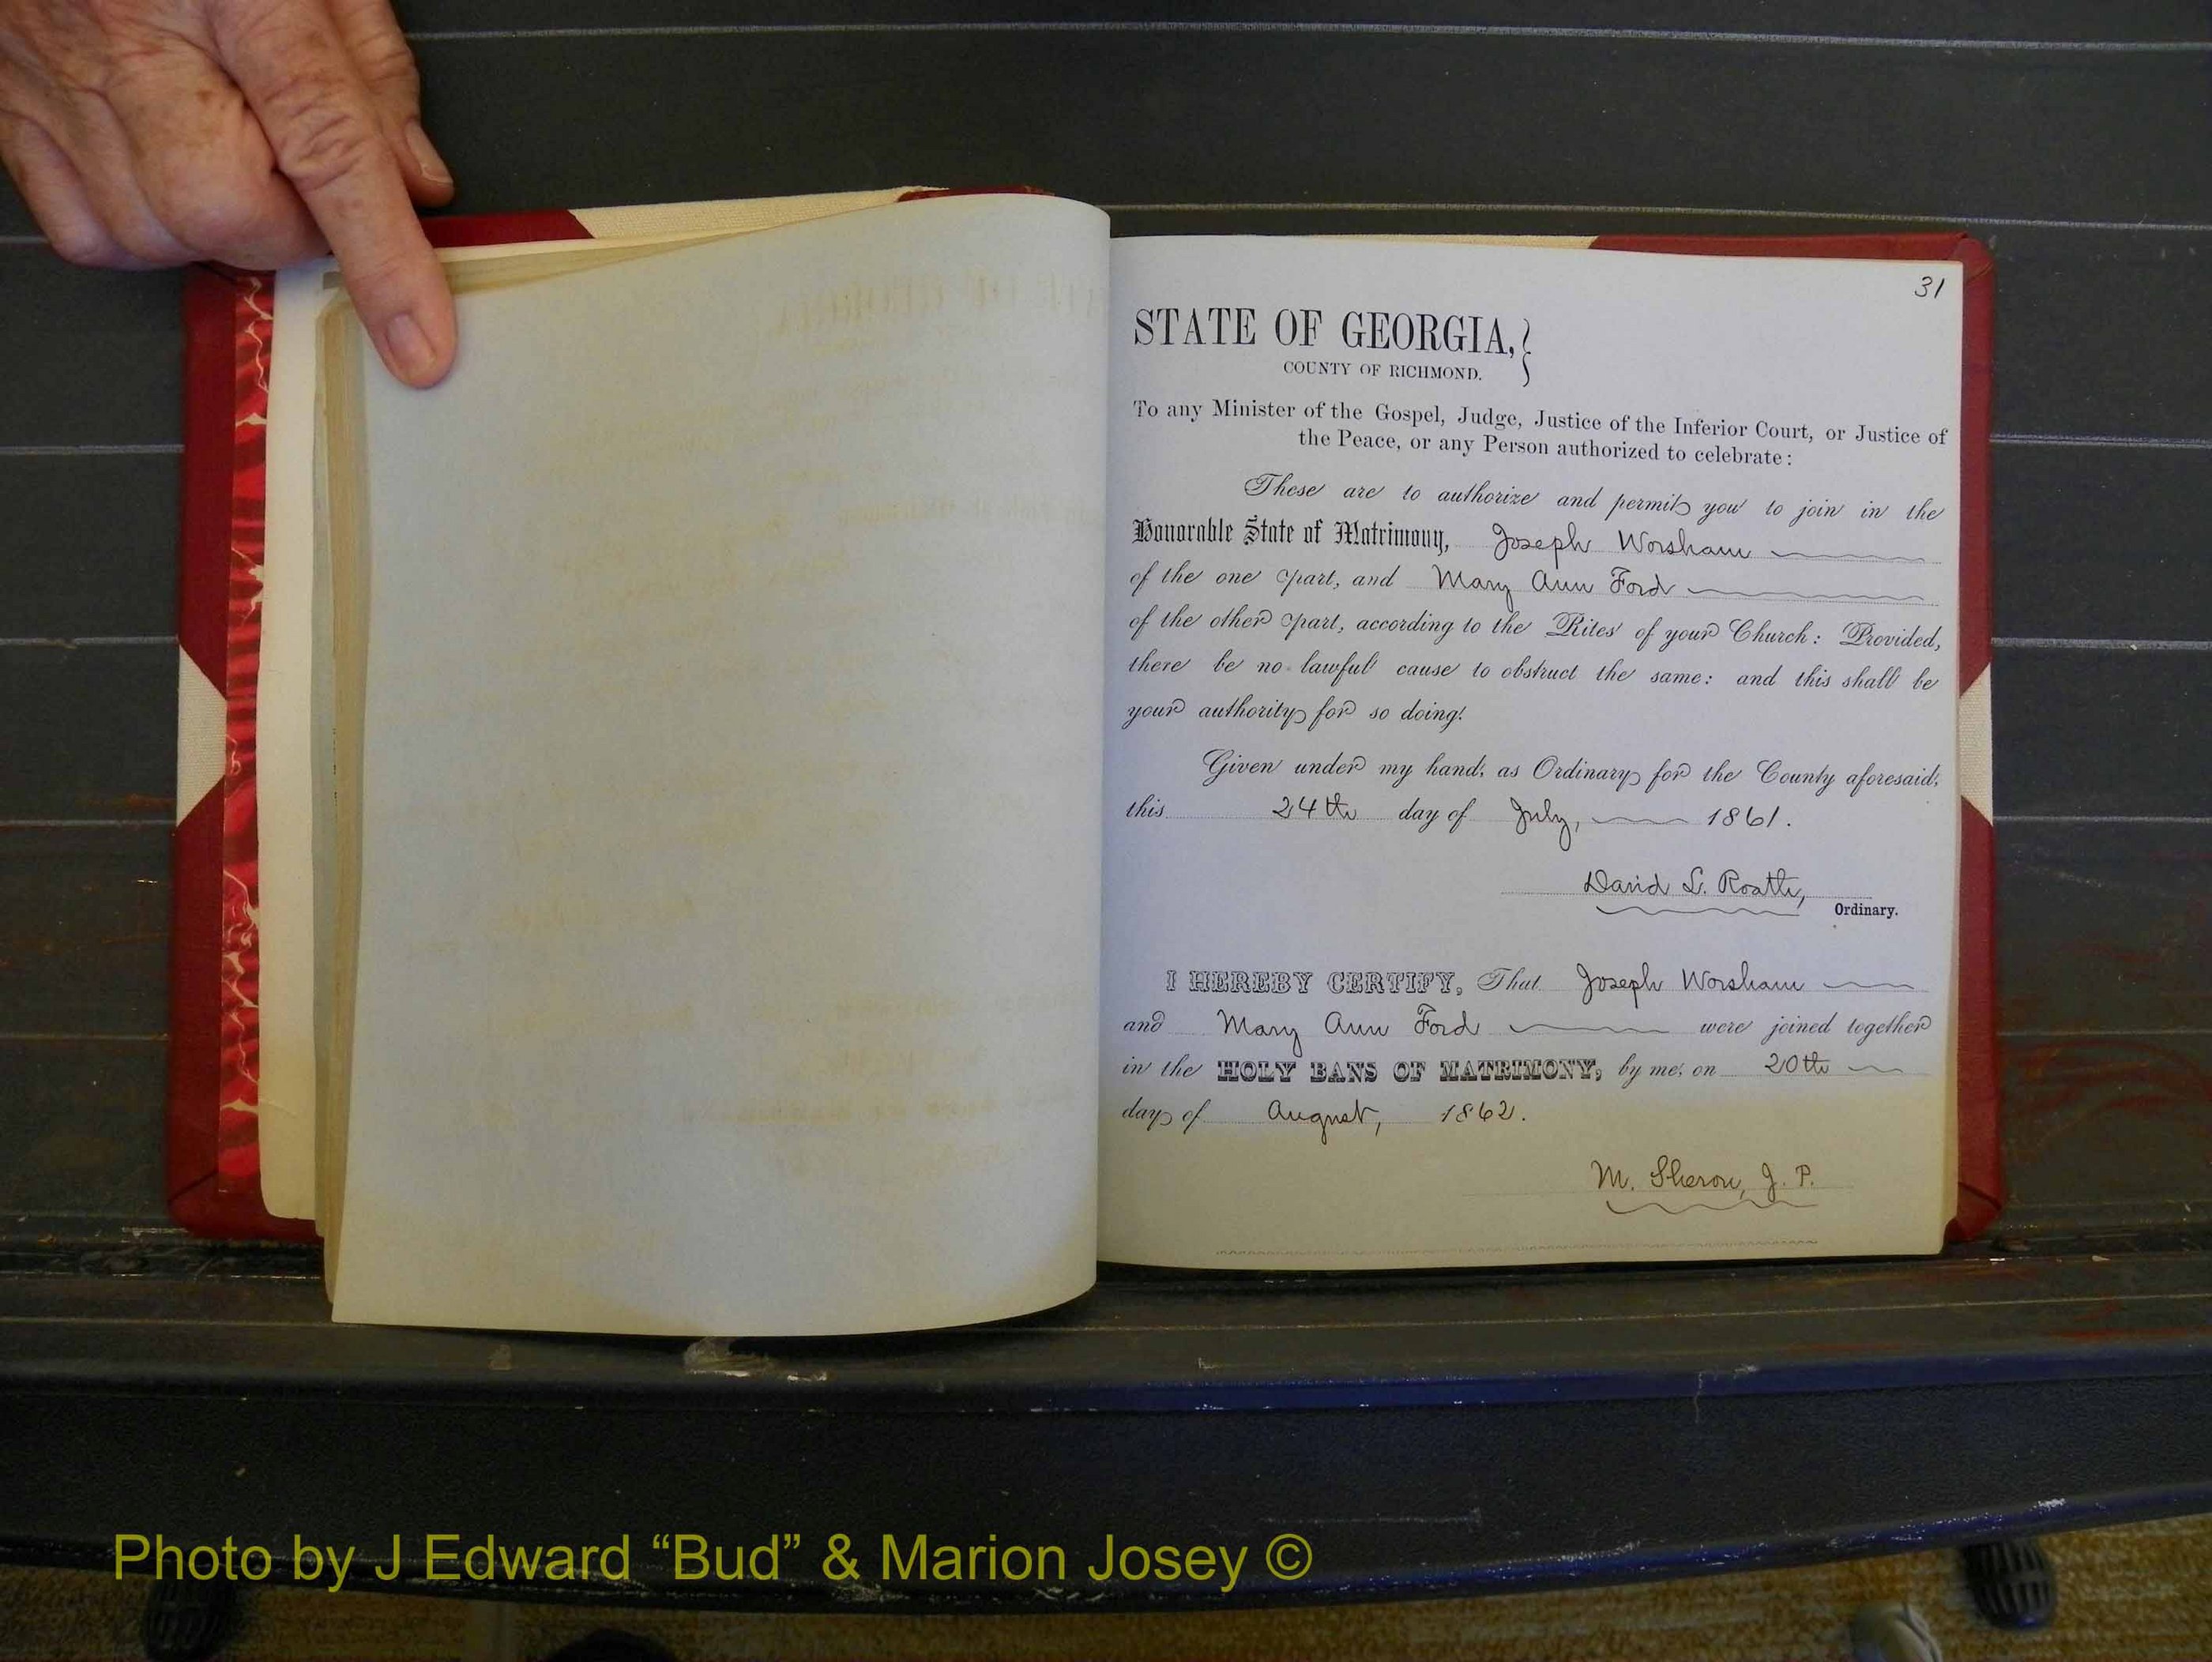 31
STATE OF GEORGIA,}
COUNTY OF RICHMOND.
To any Minister of the Gospel, Judge, Justice of the Inferior Court, or Justice of
the Peace, or any Person authorized to celebrate:
These are to authorize and permit you to join in the
Honorable State of Matrimony, Joseph Worsham
of the one part, and Mary Ann Ford
of the other part, according to the Rites of your Church: Provided,
there be no lawful cause to obstruct the same: and this shall be
your authority for so doing.
Given under my hand, as Ordinary for the County aforesaid,
this 24th day of July, 1861.
David L. Roath,
Ordinary.
I HEREBY CERTIFY, That Joseph Worsham
and Mary Ann Ford were joined together
in the HOLY BANS OF MATRIMONY, by me, on 20th
day of August, 1862.
M. Sheron, J. P.
Photo by J Edward “Bud” & Marion Josey ©